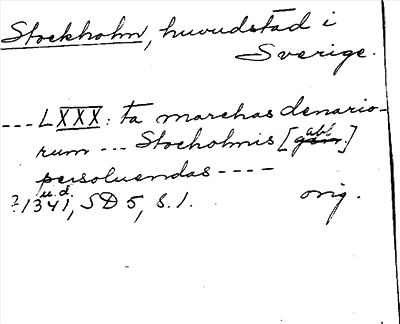 Stockholm, huvudstad i
Sverige.
--- LXXX: ta marchas denario-
rum --- Stocholmis [gen. abl.]
persoluendas ----
u.d.
?1341, SD 5, s. 1. orig.